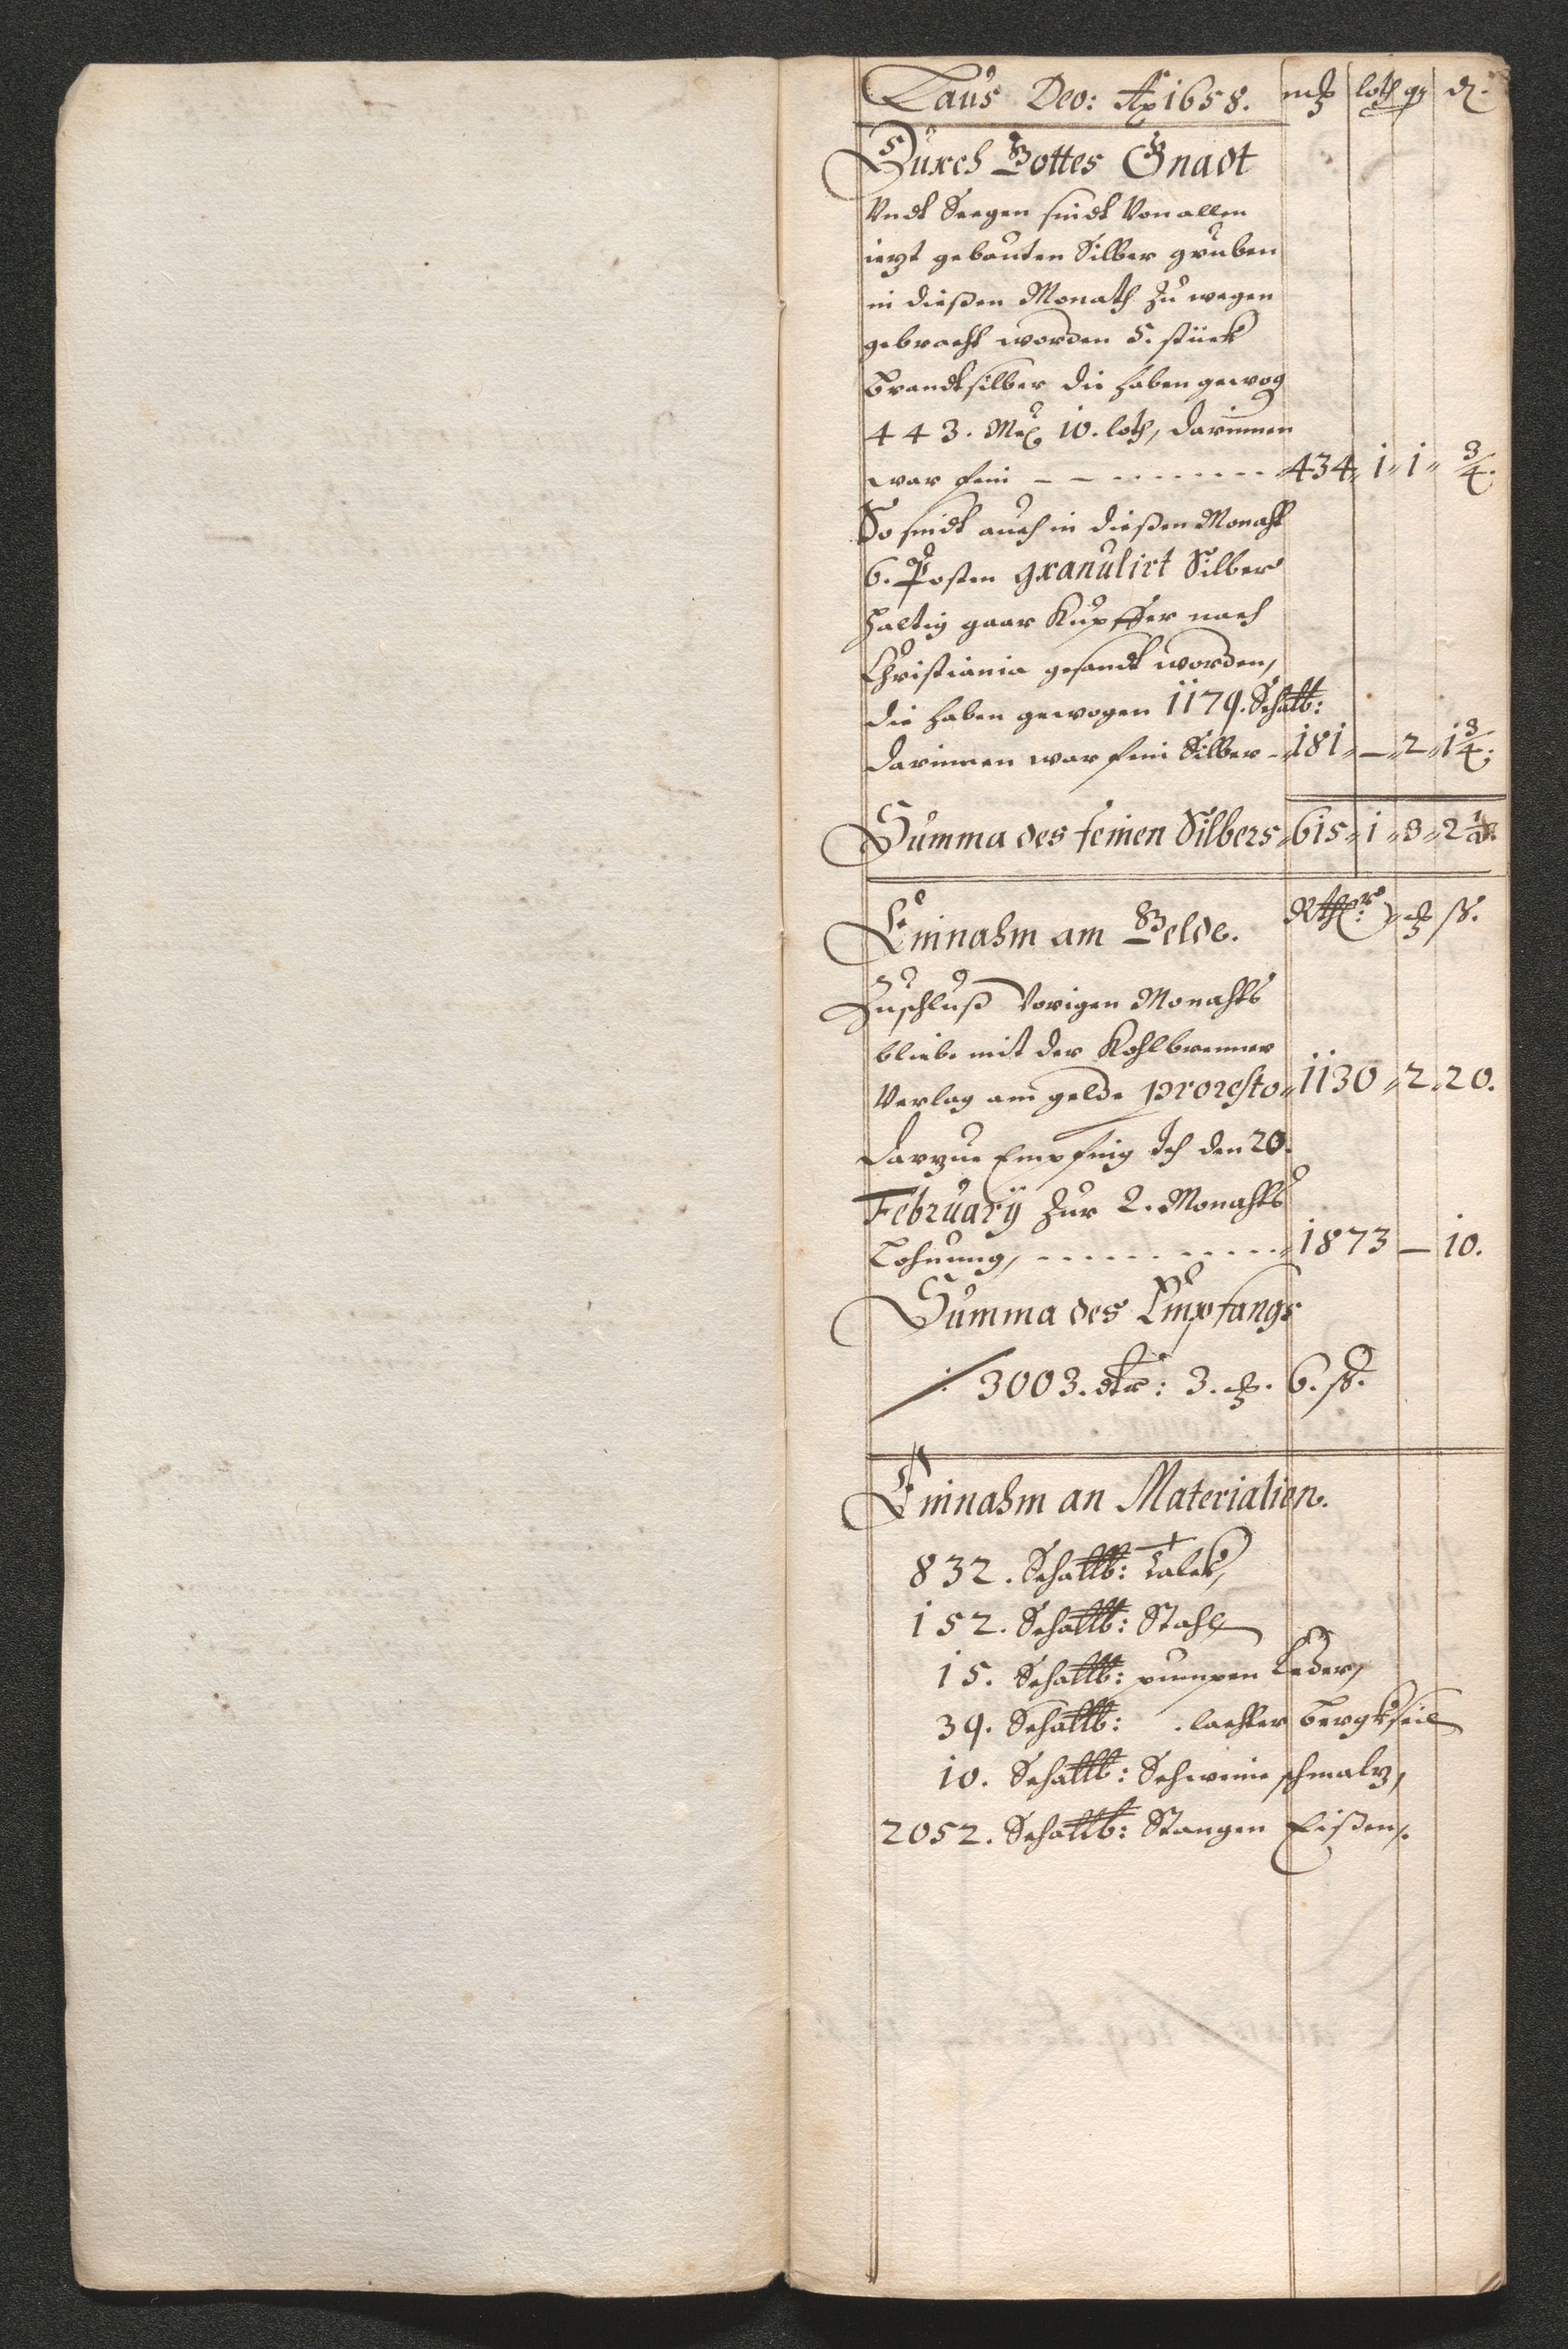 Laus Deo: Ao 1658. mk loth q₃ ₰.
Durch Gottes Gnadt
Undt Seegen sindt Von allen
iezt gebauten Silber gruben
in dießen Monath zu wegen
gebracht worden 5. stück
brandtsilber die haben gewog
443. Mk 10. loth, darinnen
war fein - - - - - - - - - - 434 " 1 " 1 " 3/4.
So sindt auch in dießen Monaht
6. Posten granulirt Silber
haltig gaar Kupffer nach
Christiania gesandt worden,
die haben gewogen 1179. Schaltt:
darinnen war fein Silber - 181 " — " 2 " 1 3/4.
Summa des feinen Silbers " 615 " 1 " 3 " 2 1/2.
Einnahm am Gelde. Rthlr: mk ß.
Zuschluß Vorigen Monahts
bliebe mit der Kohlbrenner
Verlag am gelde pro resto " 1130 " 2 " 20.
darzue Empfing Ich den 20.
February zur 2. Monahts
Lohnung, - - - - - - - - - - " 1873 — 10.
Summa des Empfangs
/: 3003. dtr: 3. mk. 6. ß.
Einnahm an Materialien.
832. Schaltt: Talck,
152. Schaltt: Stahl
15. Schaltt: pumpen Leder,
39. Schaltt: . lachter bergkseil
10. Schaltt: Schweine schmalz,
2052. Schaltt: Stangen Eißen,.